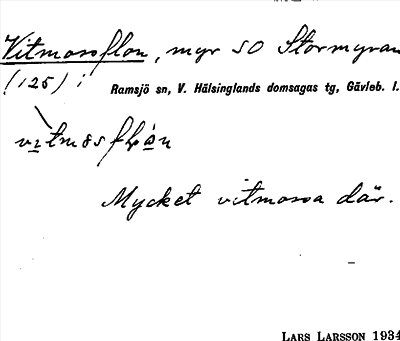 Vitmossflon, myr SO Stormyran
(125) i Ramsjö sn, V. Hälsinglands domsagas tg, Gävleb. l.
Mycket vitmossa där.
LARS LARSSON 1934